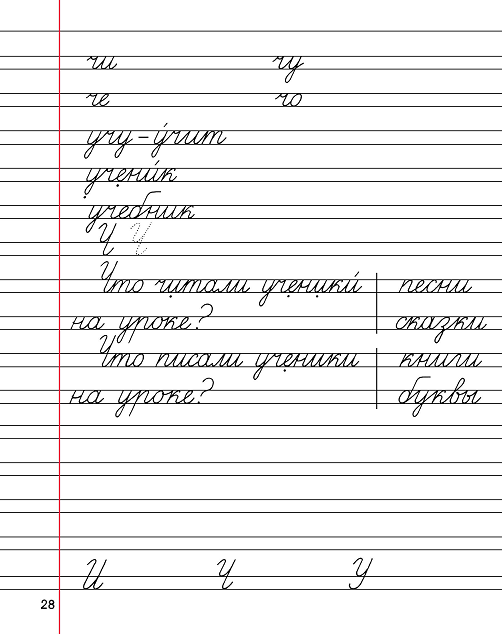 чи чу
че чо
учу – у́чит
учени́к
учебник
Ч Ч
Что читали ученики́ | песни
на уроке? | сказки
Что писали ученики | книги
на уроке? | буквы
И Ч У
28